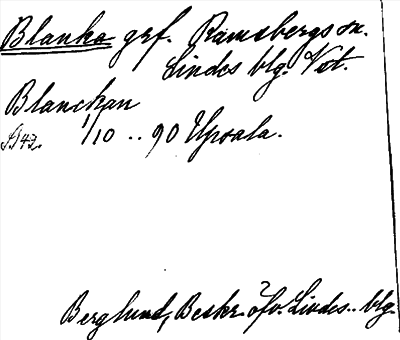 Blanka grf. Ramsbergs sn.
Lindes blg. Vst.
Blanckan
1/10 .. 90 Upsala.
Berglund, Beskr. öfv. Lindes .. blg.